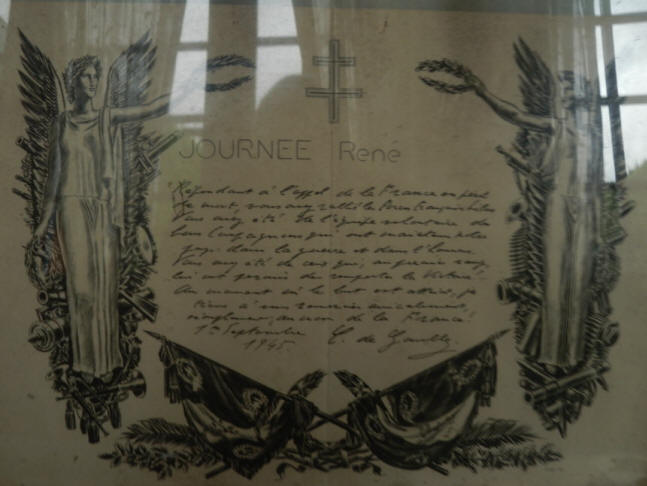 JOURNEE René
Répondant à l'appel de la France en péril
de mort, vous avez rallié les Forces Françaises Libres
Vous avez été de l'équipe volontaire des
bons Compagnons qui ont maintenu notre
pays dans la guerre et dans l'honneur
Vous avez été de ceux qui, au premier rang,
lui ont permis de remporter la Victoire!
Au moment où le but est atteint, je
tiens à vous remercier amicalement
simplement, au nom de la France!
1er Septembre
1945. C. de Gaulle